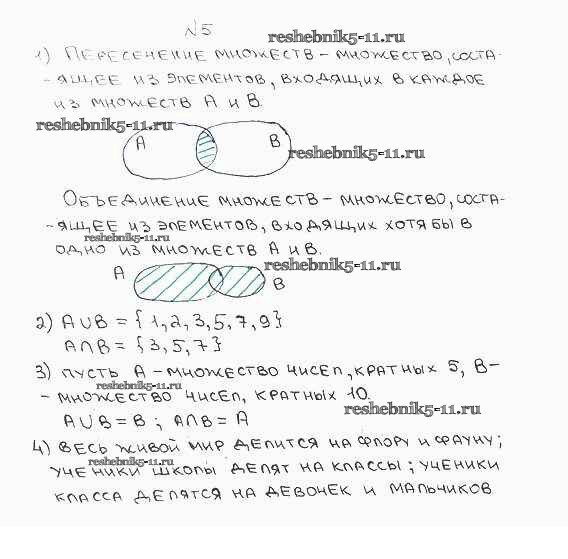 №5
reshebnik5-11.ru
1) ПЕРЕСЕЧЕНИЕ МНОЖЕСТВ – МНОЖЕСТВО, СОСТА-
-ЯЩЕЕ ИЗ ЭЛЕМЕНТОВ, ВХОДЯЩИХ В КАЖДОЕ
ИЗ МНОЖЕСТВ А И В.
reshebnik5-11.ru
A B
reshebnik5-11.ru
ОБЪЕДИНЕНИЕ МНОЖЕСТВ – МНОЖЕСТВО, СОСТА-
-ЯЩЕЕ ИЗ ЭЛЕМЕНТОВ, ВХОДЯЩИХ ХОТЯ БЫ В
reshebnik5-11.ru
ОДНО ИЗ МНОЖЕСТВ А И В.
reshebnik5-11.ru
A B
2) A∪B = {1,2,3,5,7,9}
A∩B = {3,5,7}
3) ПУСТЬ А – МНОЖЕСТВО ЧИСЕЛ, КРАТНЫХ 5, В–
reshebnik5-11.ru
– МНОЖЕСТВО ЧИСЕЛ, КРАТНЫХ 10.
reshebnik5-11.ru
A∪B = B ; A∩B = A
4) ВЕСЬ ЖИВОЙ МИР ДЕЛИТСЯ НА ФЛОРУ И ФАУНУ;
reshebnik5-11.ru
УЧЕНИКИ ШКОЛЫ ДЕЛЯТ НА КЛАССЫ; УЧЕНИКИ
КЛАССА ДЕЛЯТСЯ НА ДЕВОЧЕК И МАЛЬЧИКОВ